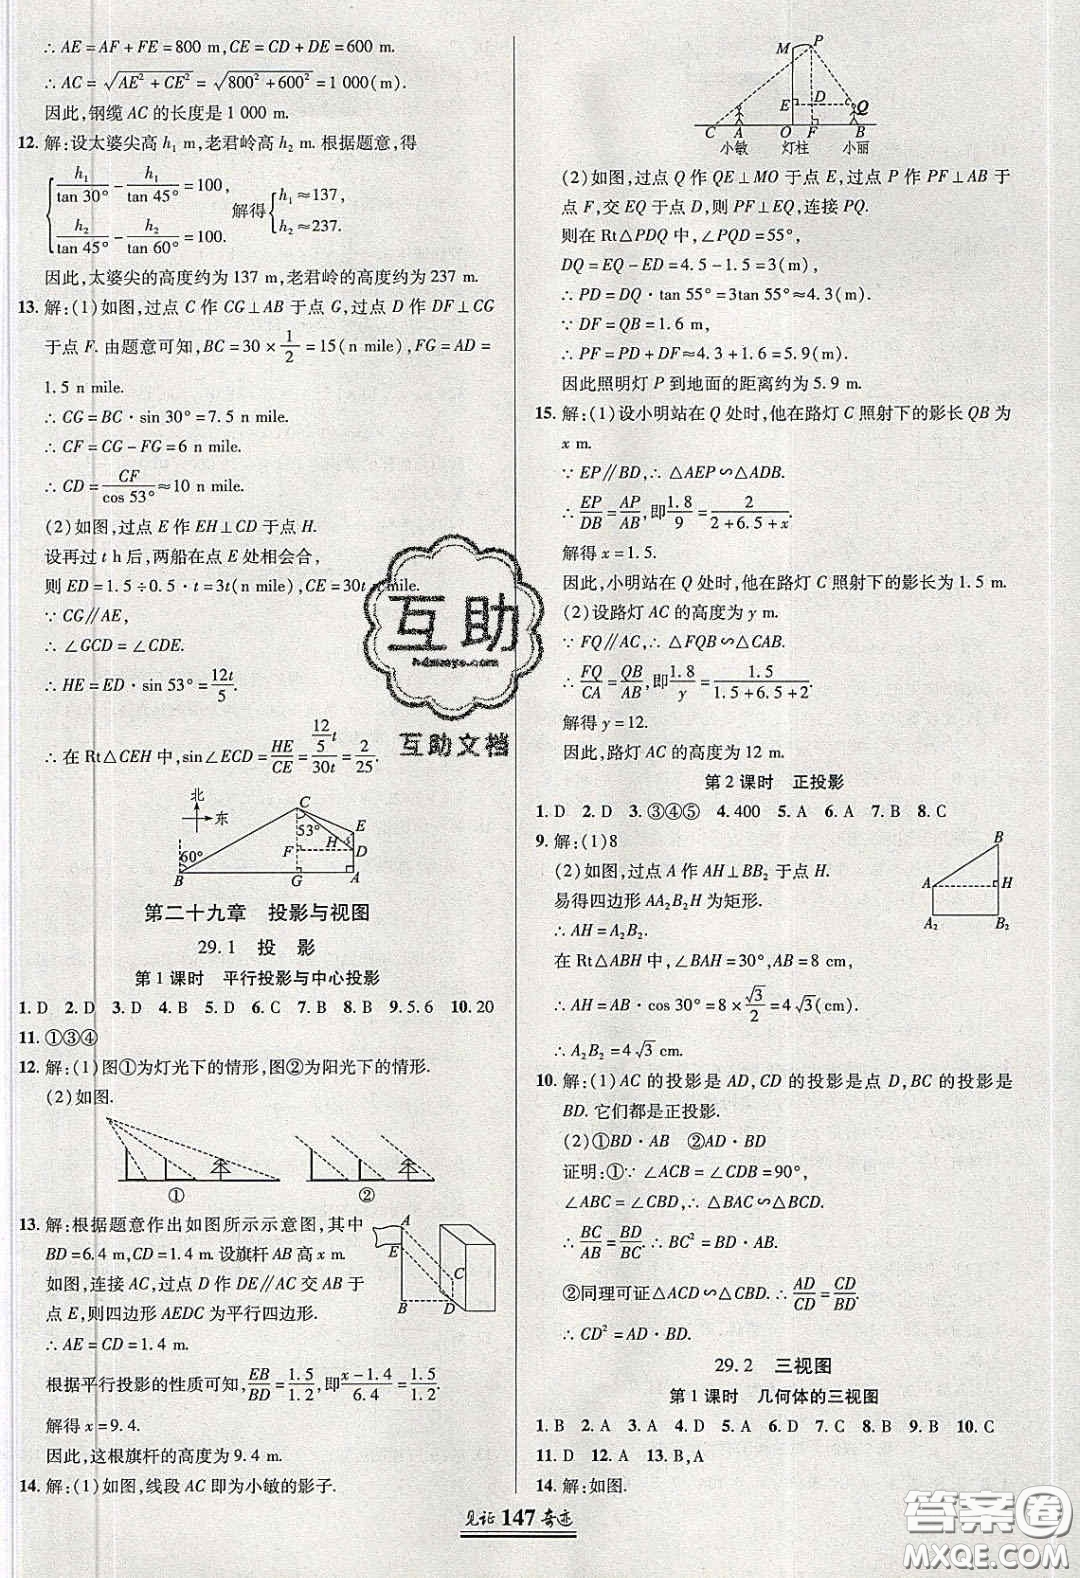 ∴ AE=AF+FE=800 m,CE=CD+DE=600 m.
∴ AC=√(AE²+CE²)=√(800²+600²)=1 000(m).
因此,钢缆 AC 的长度是 1 000 m.
12. 解:设太婆尖高 h₁ m,老君岭高 h₂ m. 根据题意,得
{h₁/tan 30°-h₁/tan 45°=100, h₂/tan 45°-h₂/tan 60°=100. 解得{h₁≈137, h₂≈237.
因此,太婆尖的高度约为 137 m,老君岭的高度约为 237 m.
13. 解:(1)如图,过点 C 作 CG⊥AB 于点 G,过点 D 作 DF⊥CG
于点 F. 由题意可知,BC=30×1/2=15(n mile),FG=AD=
1.5 n mile.
∴ CG=BC·sin 30°=7.5 n mile.
∴ CF=CG-FG=6 n mile.
∴ CD=CF/cos 53°≈10 n mile.
(2)如图,过点 E 作 EH⊥CD 于点 H.
设再过 t h 后,两船在点 E 处相会合,
则 ED=1.5÷0.5·t=3t(n mile),CE=30t n mile.
∵ CG∥AE,
∴ ∠GCD=∠CDE.
∴ HE=ED·sin 53°=12t/5.
∴ 在 Rt△CEH 中,sin∠ECD=HE/CE=(12/5 t)/30t=2/25.
北
东
C
53°
E
H
F
D
60°
B
G
A
第二十九章 投影与视图
29.1 投 影
第 1 课时 平行投影与中心投影
1. D 2. D 3. D 4. B 5. D 6. D 7. B 8. B 9. 5.6 10. 20
11. ①③④
12. 解:(1)图①为灯光下的情形,图②为阳光下的情形.
(2)如图.
① ②
13. 解:根据题意作出如图所示示意图,其中
BD=6.4 m,CD=1.4 m. 设旗杆 AB 高 x m.
如图,连接 AC,过点 D 作 DE∥AC 交 AB 于
点 E,则四边形 AEDC 为平行四边形.
∴ AE=CD=1.4 m.
A
E
C
B
D
根据平行投影的性质可知,EB/BD=1.5/1.2,即(x-1.4)/6.4=1.5/1.2.
解得 x=9.4.
因此,这根旗杆的高度为 9.4 m.
14. 解:(1)如图,线段 AC 即为小敏的影子.
M P
E D Q
C A O F B
小敏 灯柱 小丽
(2)如图,过点 Q 作 QE⊥MO 于点 E,过点 P 作 PF⊥AB 于
点 F,交 EQ 于点 D,则 PF⊥EQ,连接 PQ.
则在 Rt△PDQ 中,∠PQD=55°,
DQ=EQ-ED=4.5-1.5=3(m),
∴ PD=DQ·tan 55°=3tan 55°≈4.3(m).
∵ DF=QB=1.6 m,
∴ PF=PD+DF≈4.3+1.6=5.9(m).
因此照明灯 P 到地面的距离约为 5.9 m.
15. 解:(1)设小明站在 Q 处时,他在路灯 C 照射下的影长 QB 为
x m.
∵ EP∥BD,∴ △AEP∽△ADB.
∴ EP/DB=AP/AB,即1.8/9=2/(2+6.5+x).
解得 x=1.5.
因此,小明站在 Q 处时,他在路灯 C 照射下的影长为 1.5 m.
(2)设路灯 AC 的高度为 y m.
∵ FQ∥AC,∴ △FQB∽△CAB.
∴ FQ/CA=QB/AB,即1.8/y=1.5/(1.5+6.5+2).
解得 y=12.
因此,路灯 AC 的高度为 12 m.
第 2 课时 正投影
1. D 2. D 3. ③④⑤ 4. 400 5. A 6. A 7. B 8. C
9. 解:(1)8
(2)如图,过点 A 作 AH⊥BB₂ 于点 H.
易得四边形 AA₂B₂H 为矩形.
∴ AH=A₂B₂.
在 Rt△ABH 中,∠BAH=30°,AB=8 cm,
∴ AH=AB·cos 30°=8×√3/2=4√3(cm).
∴ A₂B₂=4√3 cm.
B
A H
A₂ B₂
10. 解:(1)AC 的投影是 AD,CD 的投影是点 D,BC 的投影是
BD. 它们都是正投影.
(2)①BD·AB ②AD·BD
证明:①∵ ∠ACB=∠CDB=90°,
∠ABC=∠CBD,∴ △BAC∽△BCD.
∴ BC/AB=BD/BC. ∴ BC²=BD·AB.
②同理可证△ACD∽△CBD. ∴ AD/CD=CD/BD.
∴ CD²=AD·BD.
29.2 三视图
第 1 课时 几何体的三视图
1. B 2. A 3. A 4. D 5. D 6. D 7. C 8. C 9. B 10. C
11. D 12. A 13. B,A
14. 解:如图.
见证 147 奇迹
互助
互助文档
答案圈
MXQE.COM